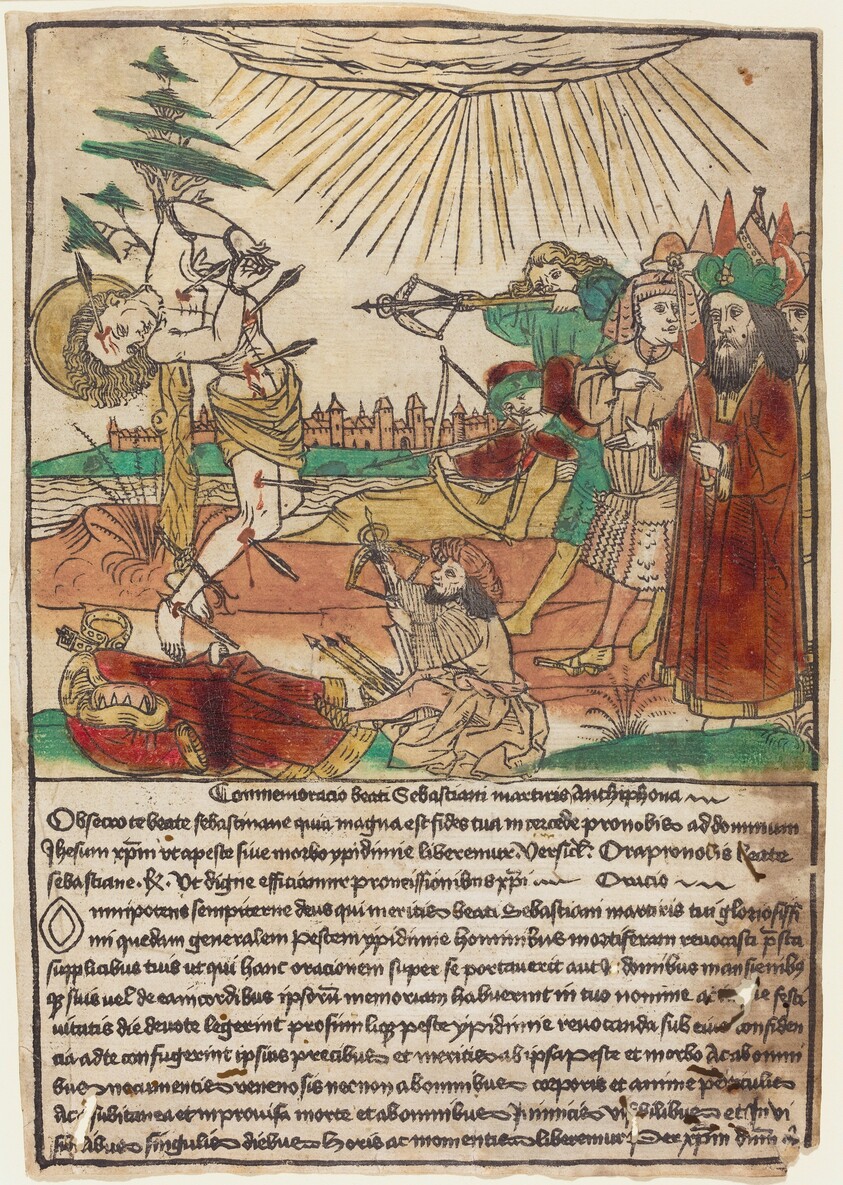 Commemoracio beati Sebastiani martiris Anthiphona
Obsecro te beate sebastiane quia magna est fides tua intercede pro nobis ad dominum
Jhesum xp̄m vt a peste siue morbo ypidimie liberemur. Versicl: Ora pro nobis beate
sebastiane. R. Ut digne efficiamur promissionibus xp̄i Oracio
Omnipotens sempiterne deus qui meritis beati Sebastiani martiris tui gloriosissi
mi quedam generalem Pestem ypidimie hominibus mortiferam reuocasti p̄sta
supplicibus tuis ut qui hanc oracionem super se portauerit aut domibus mansienibꝰ
suis uel de ea in cordibus ipsorū memoriam habuerint in tuo nomine festi
uitatis die deuote legerint peste ypidimie reuocanda sub eius confiden
cia ad te confugerint ipsius precibus et meritis ab ipsa Peste et morbo Ac ab omni
bus nocumentis venenosis necnon ab omnibus corporis et anime periculis
Ac subitanea et inprouisa morte et ab omnibus Inimicis visibilibus et Inui
sibilibus singulis diebus horis ac momentis liberemur Per xp̄m